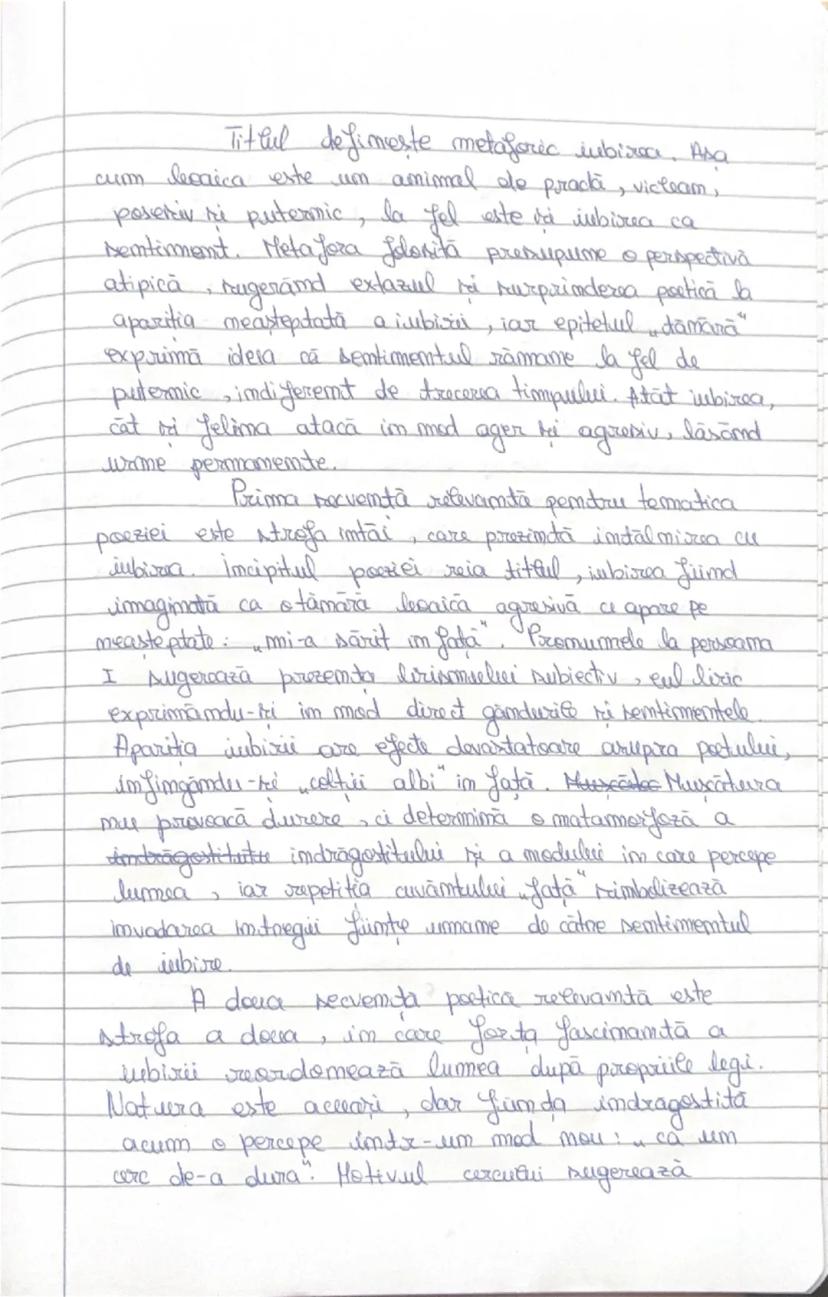 Titlul definește metaforic iubirea. Așa
cum leoaica este un animal de pradă, viclean,
posesiv și puternic, la fel este și iubirea ca
sentiment. Metafora folosită presupune o perspectivă
atipică, sugerând extazul și surprinderea poetică la
apariția neașteptată a iubirii, iar epitetul „tânără"
exprimă ideia că sentimentul rămâne la fel de
puternic, indiferent de trecerea timpului. Atât iubirea,
cât și felina atacă în mod ager și agresiv, lăsând
urme permanente.
Prima secvență relevantă pentru tematica
poeziei este strofa întâi, care prezintă întâlnirea cu
iubirea. Incipitul poeziei reia titlul, iubirea fiind
imaginată ca o tânără leoaică agresivă ce apare pe
neașteptate: „mi-a sărit în față". Pronumele la persoana
I sugerează prezența lirismului subiectiv, eul liric
exprimându-și în mod direct gândurile și sentimentele.
Apariția iubirii are efecte devastatoare asupra poetului,
înfingându-și „colții albi" în față. Mușcătura
nu provoacă durere, ci determină o matamorfoză a
îndrăgostitului și a modului în care percepe
lumea, iar repetiția cuvântului „față" simbolizează
invadarea întregii ființe umane de către sentimentul
de iubire.
A doua secvență poetică relevantă este
strofa a doua, în care forța fascinantă a
iubirii reordonează lumea după propriile legi.
Natura este aceeași, dar ființa îndragostită
acum o percepe într-un mod nou: „ca un
cerc de-a dura". Motivul cercului sugerează